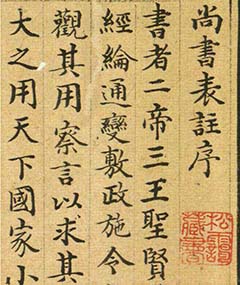 尚書表註序
書者二帝三王聖賢
經綸通變敷政施令
觀其用察言以求其
大之用天下國家小